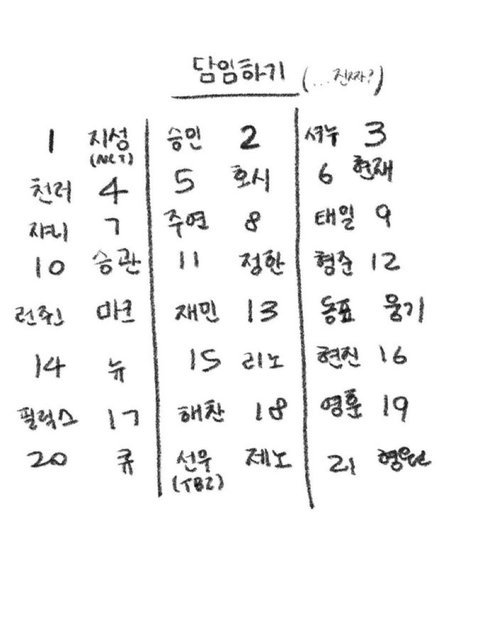 담임하기 (...진짜?)
1 지성 승인 2 셔누 3
(NCT)
천러 4 5 호시 6 현재
쟈니 7 주연 8 태일 9
10 승관 11 정한 형준 12
런쥔 마크 재민 13 동표 웅기
14 뉴 15 리노 현진 16
필릭스 17 해찬 18 영훈 19
20 큐 선우 제노 21
(TBZ)